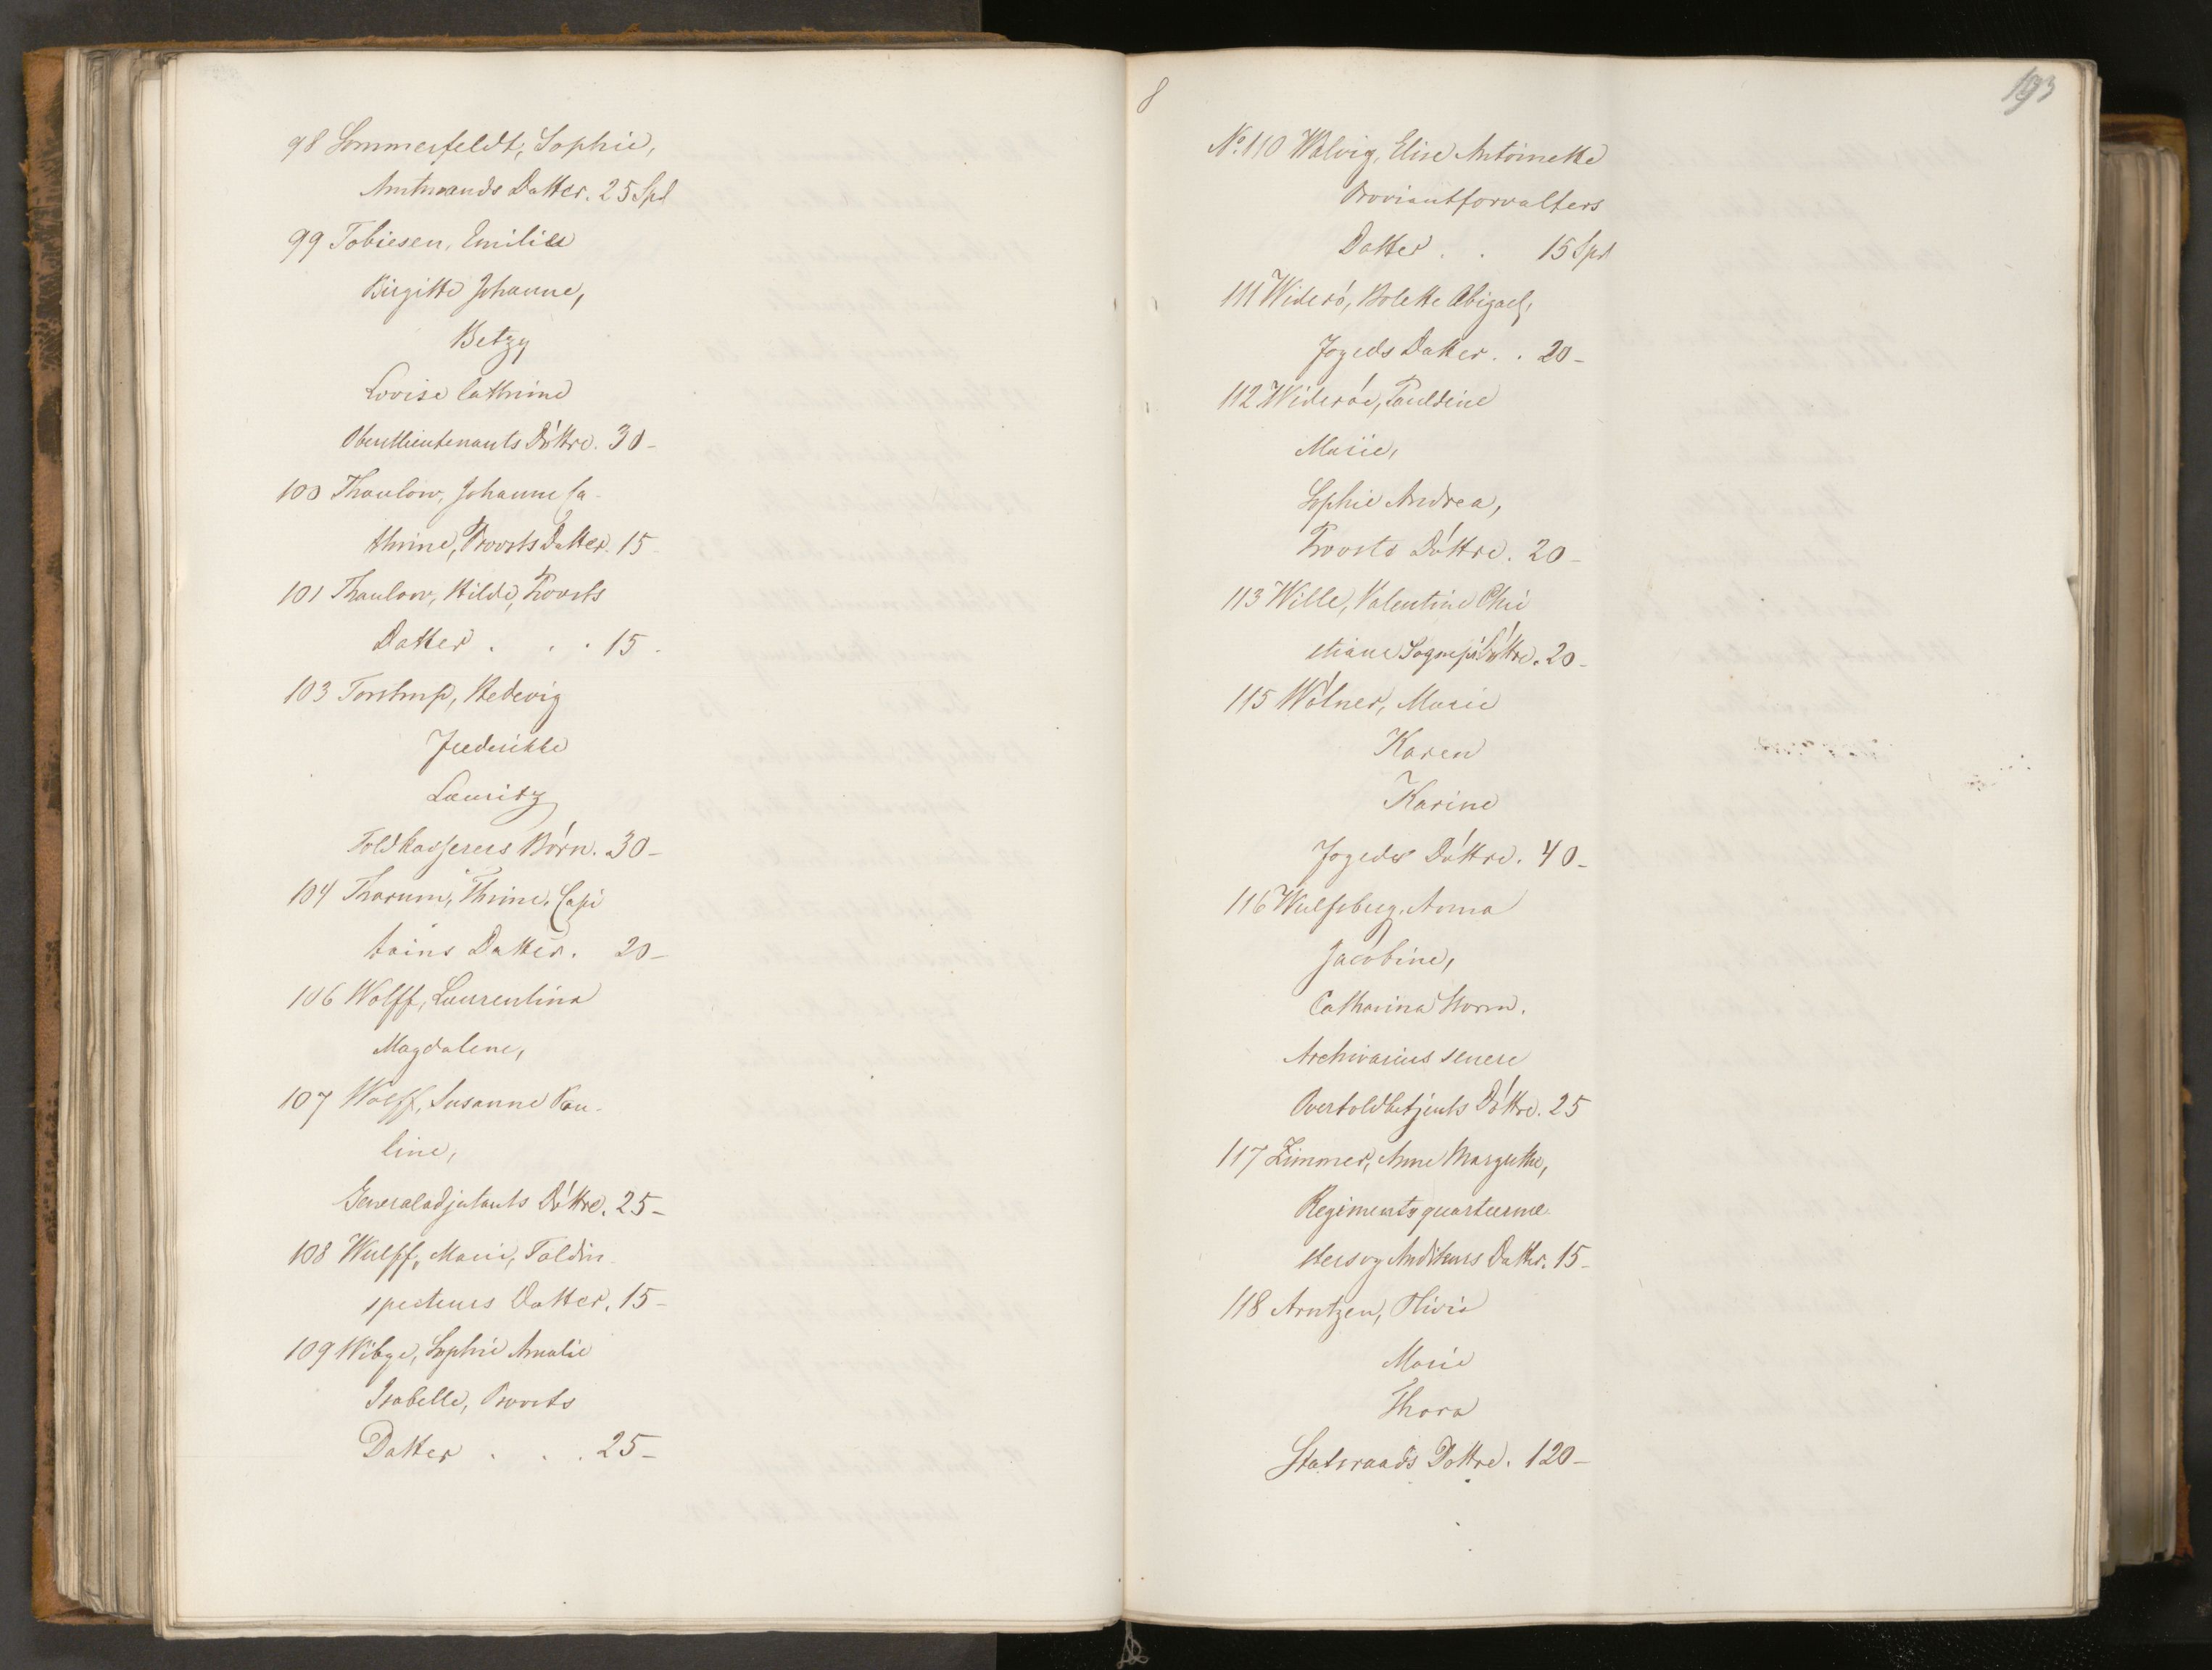 98 Sommerfeldt, Sophie,
Amtmands Datter. 25 Spd
99 Tobiesen, Emilie
Birgitte Johanne,
Betzy
Lovise Cathrine
Oberstlieutenants Döttre. 30-
100 Thaulow, Johanne Ca-
thrine, Provsts Datter. 15
101 Thaulow, Hilde, Provsts
Datter . . . 15.
103 Torstrup, Hedevig
Frederikke
Lauritz
Toldkasserers Börn. 30-
104 Tharum, Thrine, Capi
tains Datter. 20-
106 Wolff, Laurentina
Magdalene,
107 Wolff, Susanne Pau-
line,
Generaladjutants Döttre. 25-
108 Wulff, Marie, Toldin
specteurs Datter. 15-
109 Wibye, Sophie Amalie
Isabelle, Provsts
Datter . . . 25-
8
193
No. 110 Walvig, Elise Antoinette
Proviantforvalters
Datter . . 15 Spd
111 Widerö, Bolette Abigael,
Fogeds Datter. . 20-
112 Wideröe, Pauldine
Marie,
Sophie Andrea,
Provsts Döttre. 20-
113 Wille, Valentine Chri
stiane Sognepr. Döttre. 20-
115 Wölner, Marie
Karen
Karine
Fogeds Döttre. 40-
116 Wulfsberg, Anna
Jacobine,
Catharina Storm.
Archivarius senere
Overtoldbetjents Döttre. 25
117 Zimmer, Anne Margrethe,
Regimentsquarteerme-
sters og Auditeurs Datter. 15-
118 Arntzen, Olivia
Marie
Thora
Statsraads Dottre. 120-